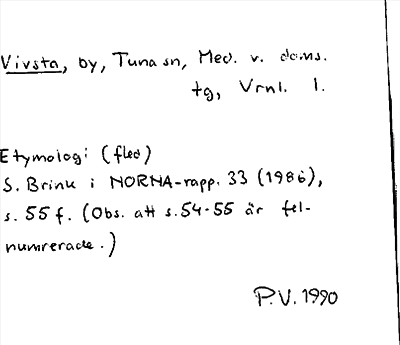 Vivsta, by, Tuna sn, Med. v. doms.
tg, Vrnl. l.
Etymologi (fled)
S. Brink i NORNA-rapp. 33 (1986),
s. 55 f. (Obs. att s. 54-55 är fel-
numrerade.)
P.V. 1990